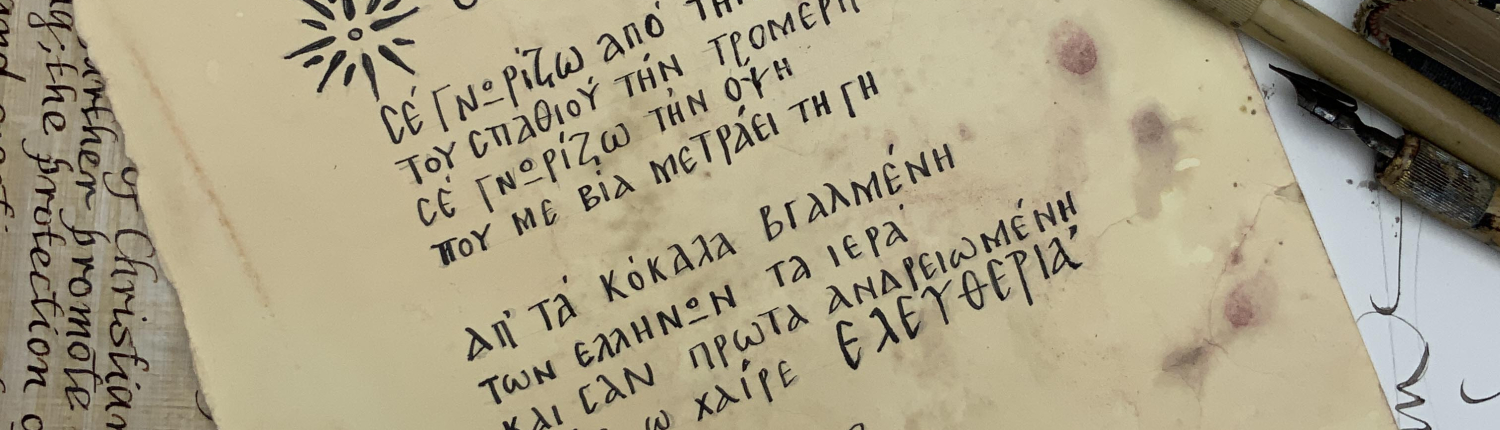 σέ γνωρίζω από τήν
του σπαθιού τήν τρομερή
σέ γνωρίζω τήν οψη
που με βία μετράει τη γη
απ' τά κόκαλα βγαλμένη
των ελληνων τα ιερά
και σαν πρωτα ανδρειωμένη
ω χαίρε ελευθεριά
Christian
further promote
the protection